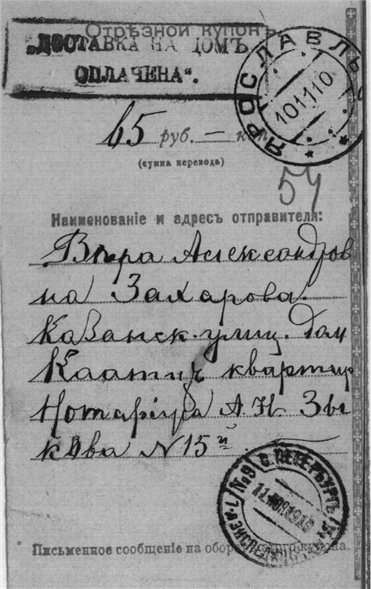 Отрѣзной купонъ.
„ДОСТАВКА НА ДОМЪ
ОПЛАЧЕНА“.
ЯРОСЛАВЛЬ
101110
65 руб. — коп.
(сумма перевода)
54
Наименованіе и адресъ отправителя:
Вѣра Александров
на Захарова.
Казанск. улиц. дом
квартир
Нотаріуса А Н Зы
кова N 15й
С. ПЕТЕРБУРГЪ
Письменное сообщеніе на оборотѣ купона.